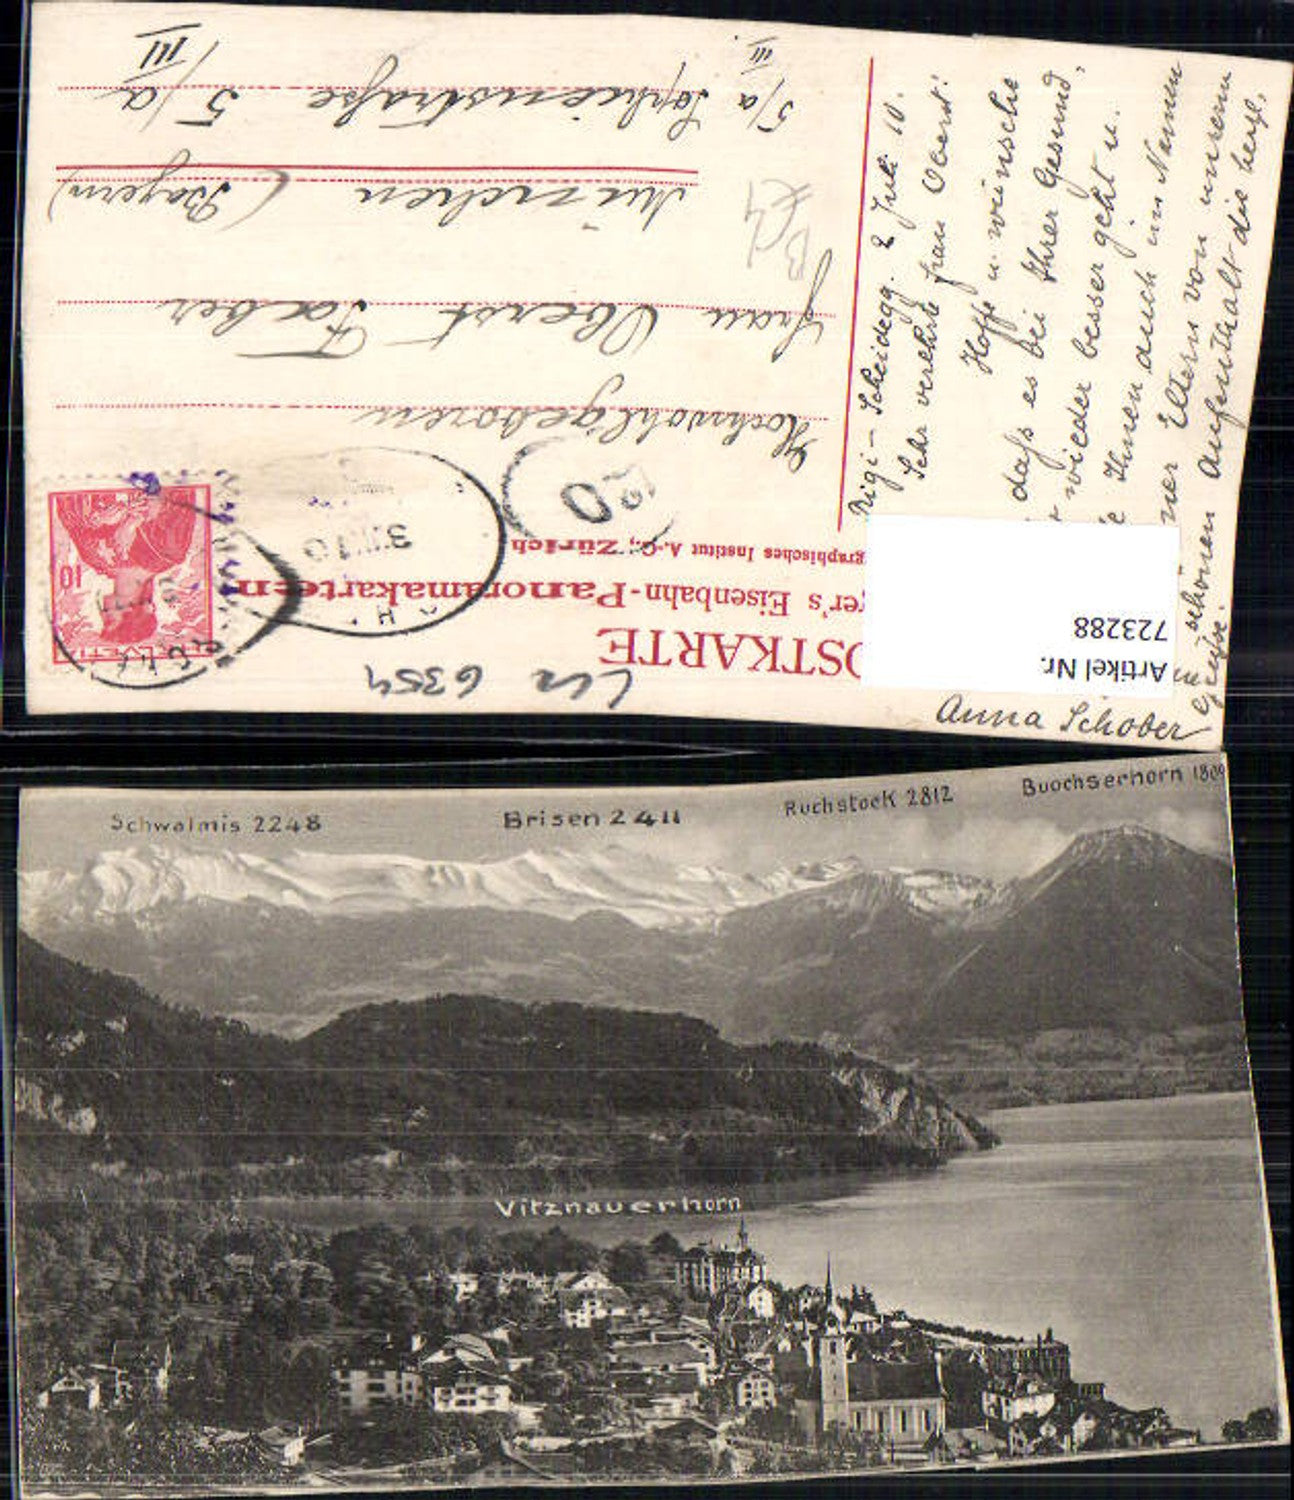 Rigi-Scheidegg. 2 Juli 10.
Sehr verehrte Frau Oberst!
Hoffe u. wünsche
daß es bei Ihrer Gesund,
wieder besser geht u.
Ihnen auch im Namen
Eltern von unserem
schönen Aufenthalt die herzl,
Grüsse.
Anna Schober
OSTKARTE
er's Eisenbahn-Panoramakarten
graphisches Institut A.-G., Zürich
HELVETIA
10
Hochwohlgeboren
Frau Oberst Faber
München (Bayern)
Sophienstraße 5/a III
5/a III.
6354
Artikel Nr.
723288
Schwalmis 2248
Brisen 2411
Ruchstock 2812
Buochserhorn 1809
Vitznauerhorn